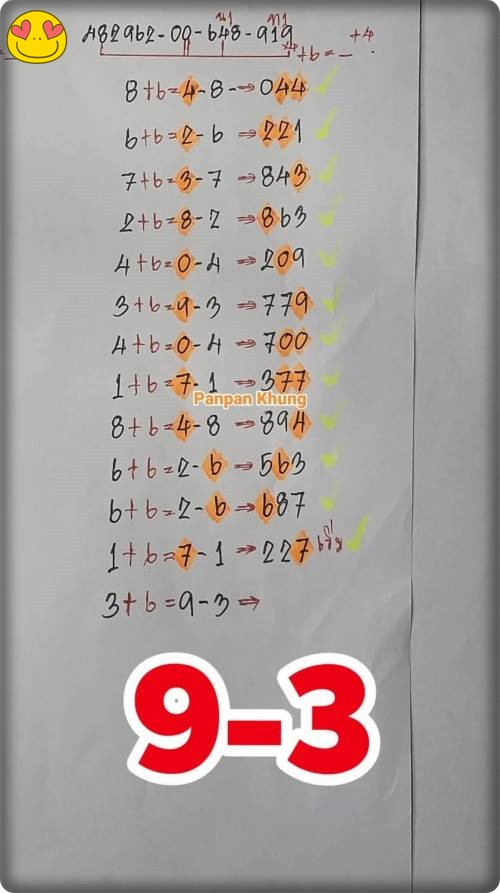 482962-00-648-919 +4
+6=-
8+6=4-8-⇒044
6+6=2-6⇒221
7+6=3-7⇒843
2+6=8-2⇒863
4+6=0-4⇒209
3+6=9-3⇒779
4+6=0-4⇒700
1+6=7-1⇒377
Panpan Khung
8+6=4-8⇒894
6+6=2-6⇒563
6+6=2-6⇒687
1+6=7-1⇒227
3+6=9-3⇒
9-3